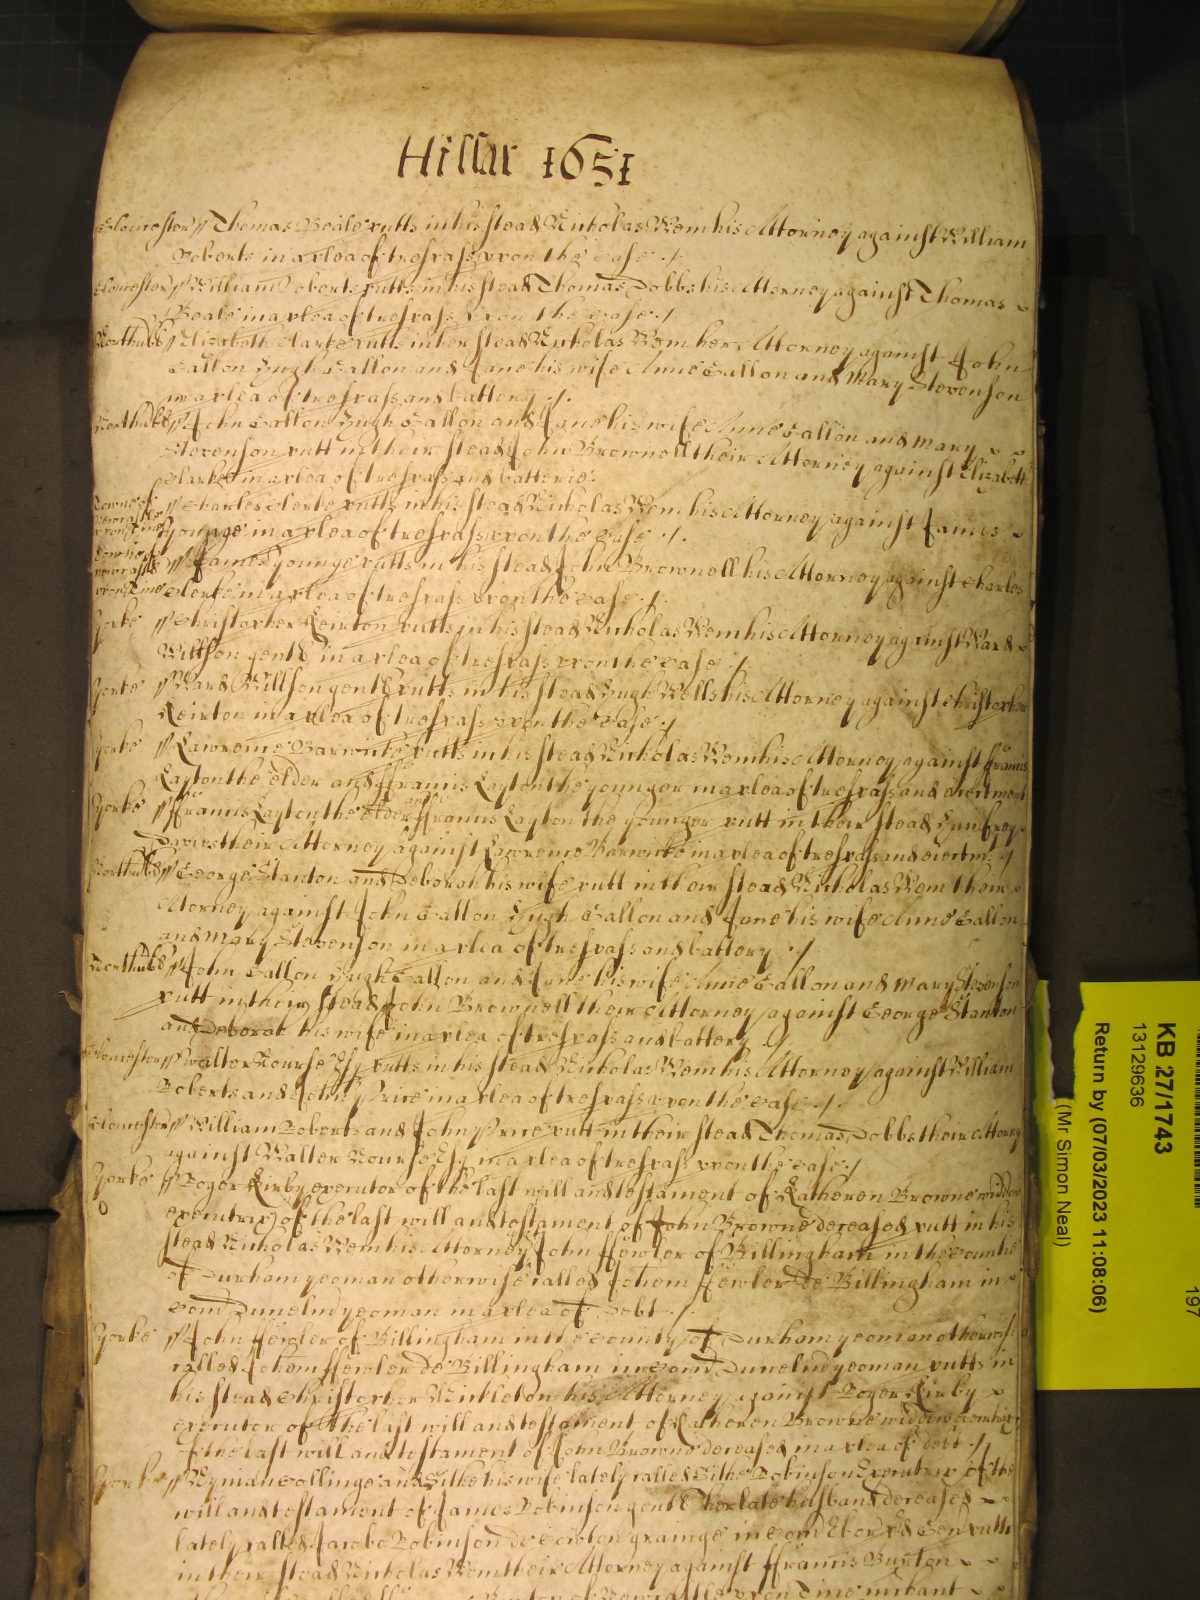 Hillar 1651
Gloucester // Thomas Beale putts in his stead Nicholas Wem his Attorney against William
Roberts in a plea of trespass upon the Case ./.
Gloucester // William Roberts putts in his stead Thomas Dobbs his Attorney against Thomas
Beale in a plea of trespass upon the Case ./
Northubld // Elizabeth Clarke putts in her stead Nicholas Wem her Attorney against John
Gallon Hugh Gallon and Jane his wife Anne Gallon and Mary Stevenson
in a plea of trespass and battery ./.
Northubld // John Gallon Hugh Gallon and Jane his wife Anne Gallon and Mary
Stevenson putt in their stead John Brownell their Attorney against Elizabeth
Clarke in a plea of trespass and batterie.
Towne of Newcastle upon Tine // Charles Clerke putts in his stead Nicholas Wem his Attorney against James
Younge in a plea of trespass upon the Case ./.
Towne of Newcastle upon Tine // James Younge putts in his stead John Brownell his Attorney against Charles
Clerke in a plea of trespass upon the Case ./.
Yorke // Christopher Keirton putts in his stead Nicholas Wem his Attorney against Ward
Willson gent in a plea of trespass upon the Case ./.
Yorke // Ward Willson gent putts in his stead Hugh Wells his Attorney against Christopher
Keirton in a plea of trespass upon the Case ./
Yorke // Lawrence Barwicke putts in his stead Nicholas Wem his Attorney against ffrancis
Layton the elder and ffrancis Layton the younger in a plea of trespass and eiectment
Yorke // ffrancis Layton the elder and ffrancis Layton the younger putt in their stead Humfrey
Davies their Attorney against Lawrence Barwicke in a plea of trespass and eiectmt ./
Northubld // George Stanton and Deborah his wife putt in their stead Nicholas Wem their
Attorney against John Gallon Hugh Gallon and Jane his wife Anne Gallon
and Mary Stevenson in a plea of trespass and battery ./
Northubld // John Gallon Hugh Gallon and Jane his wife Anne Gallon and Mary Stevenson
putt in their stead John Brownell their Attorney against George Stanton
and Deborah his wife in a plea of trespass and battery ./
Gloucester // Walter Nourse Esq putts in his stead Nicholas Wem his Attorney against William
Roberts and John Price in a plea of trespass upon the Case ./.
Gloucester // William Roberts and John Price putt in their stead Thomas Dobbs their Attorney
against Walter Nourse Esq in a plea of trespass upon the Case ./
Yorke // Roger Kirby executor of the last will and testament of Katheren Browne widdow
executrix of the last will and testament of John Browne deceased putt in his
stead Nicholas Wem his Attorney John ffewler of Billingham in the Countie
of Durham yeoman otherwise called Johem ffewler de Billingham in
Com Dunelm yeoman in a plea of Debt ./
Yorke // John ffewler of Billingham in the County of Durham yeoman otherwise
called Johem ffewler de Billingham in Com Dunelm yeoman putts in
his stead Christopher Nickleton his Attorney against Roger Kirby
executor of the last will and testament of Katheren Browne widdow executrix
of the last will and testament of John Browne deceased in a plea of debt ./
Yorke // Wyman Collinge and his wife lately called Robinson Executrix of the
will and testament of James Robinson gent her late husband deceased
lately called Jacobo Robinson de Cowton grainge in Com Ebor gen putts
in their stead Nicholas Wem their Attorney against ffrancis Buxton
Newcastle upon Tine
KB 27/1743
13129636
Return by (07/03/2023 11:08:06)
(Mr Simon Neal)
197